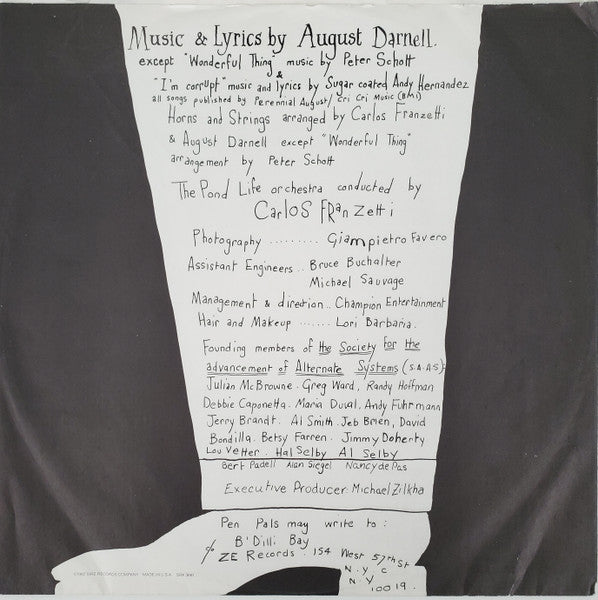 Music & Lyrics by August Darnell.
except "Wonderful Thing" music by Peter Schott
&
"I'm corrupt" music and lyrics by Sugar coated Andy Hernandez
all songs published by Perennial August/ Cri Cri Music (BMI)
Horns and Strings arranged by Carlos Franzetti
& August Darnell except "Wonderful Thing"
arrangement by Peter Schott
The Pond Life orchestra conducted by
Carlos FRanZetti
Photography ......... Giampietro Favero
Assistant Engineers .. Bruce Buchalter
Michael Sauvage
Management & direction .. Champion Entertainment
Hair and Makeup ...... Lori Barbaria.
Founding members of the Society for the
advancement of Alternate Systems (S.A.A.S)
Julian McBrowne. Greg Ward, Randy Hoffman
Debbie Caponetta. Maria Duval, Andy Fuhrmann
Jerry Brandt. Al Smith. Jeb Brien, David
Bondilla. Betsy Farren. Jimmy Doherty
Lou Vetter. Hal Selby Al Selby
Bert Padell Alan Siegel Nancy de Pas
Executive Producer: Michael Zilkha
Pen Pals may write to :
B'Dilli Bay
¢ ZE Records. 154 West 57th St
N.Y.C
N.Y
10019.
RECORDS COMPANY MADE IN U.S.A.